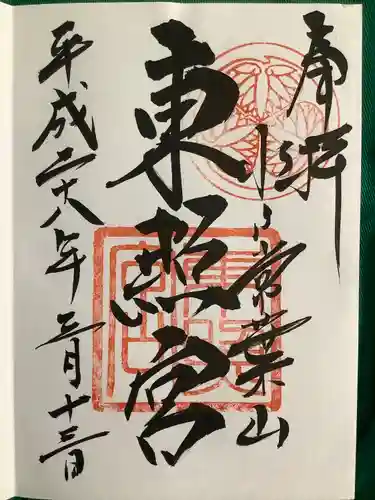 奉拝
水戸常葉山
東照宮
平成二十八年三月十三日